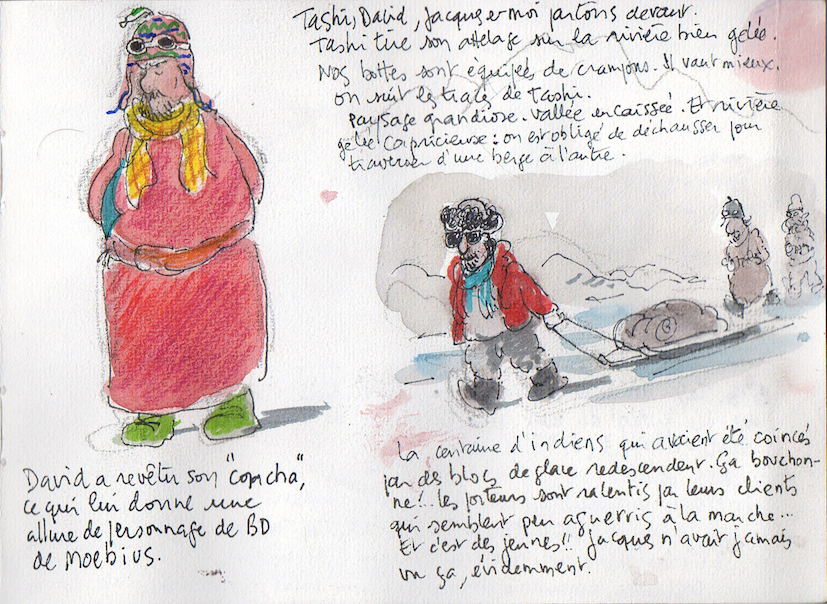 Tashi, David, Jacques et moi partons devant.
Tashi tire son attelage sur la rivière bien gelée.
Nos bottes sont équipés de crampons. Il vaut mieux.
on suit les traces de Tashi.
Paysage grandiose. Vallée encaissée. Et rivière
gelée capricieuse : on est obligé de déchausser pour
traverser d'une berge à l'autre.
La centaine d'indiens qui avaient été coincés
par des blocs de glace redescendent. Ça bouchon-
ne !.. les porteurs sont ralentis par leurs clients
qui semblent peu aguerris à la marche...
Et c'est des jeunes !! Jacques n'avait jamais
vu ça, évidemment.
David a revêtu son "goncha",
ce qui lui donne une
allure de personnage de BD
de Moebius.